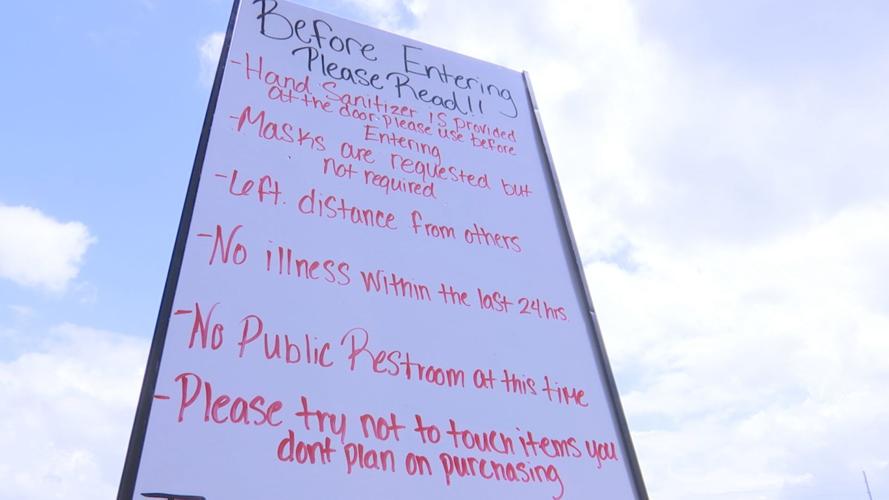 Before Entering
Please Read!!
-Hand Sanitizer is provided
at the door please use before
Entering
-Masks are requested but
not required
-Left. distance from others
-No illness within the last 24hrs.
-No Public Restroom at this time
-Please try not to touch items you
dont plan on purchasing